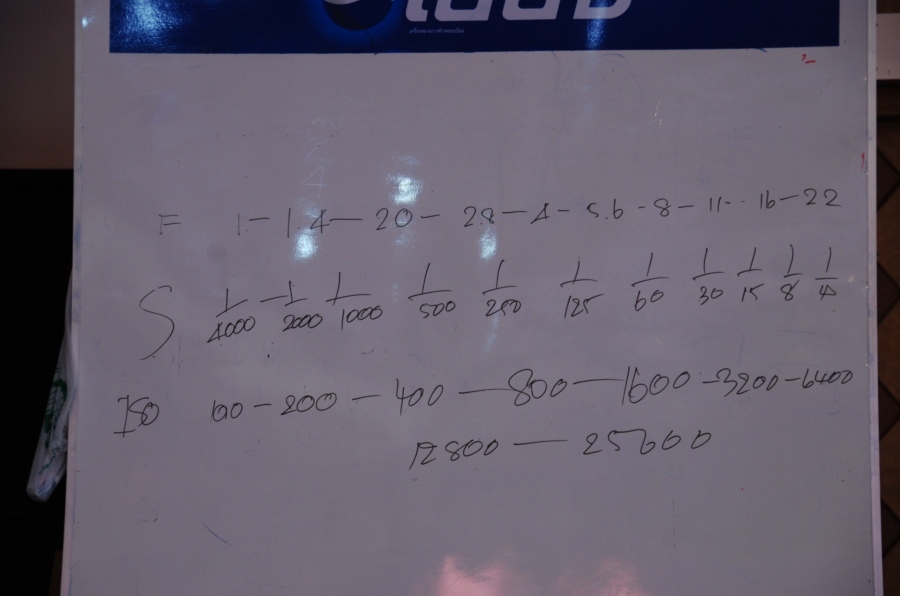 F 1.- 1.4- 20- 2.8-4- 5.6-8-11-16-22
S 1/4000 1/2000 1/1000 1/500 1/250 1/125 1/60 1/30 1/15 1/8 1/4
ISO 100-200-400-800-1600-3200-6400
12800-25600